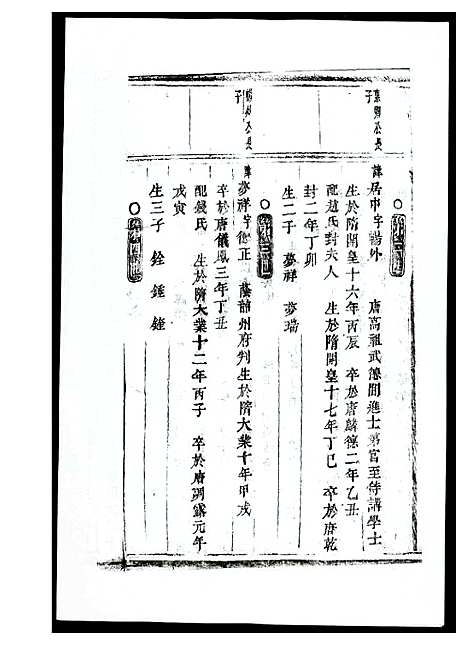 公長
子
諱居中字暢外 唐高祖武德間進士第官至侍講學士
生於隋開皇十六年丙辰 卒於唐麟德二年乙丑
配趙氏封夫人 生於隋開皇十七年丁巳 卒於唐乾
封二年丁卯
生二子 夢祥 夢瑞
公長
子
諱夢祥字德正 州府判生於隋大業十年甲戌
卒於唐儀鳳三年丁丑
配錢氏 生於隋大業十二年丙子 卒於唐調露元年
戊寅
生三子 銓 鍾